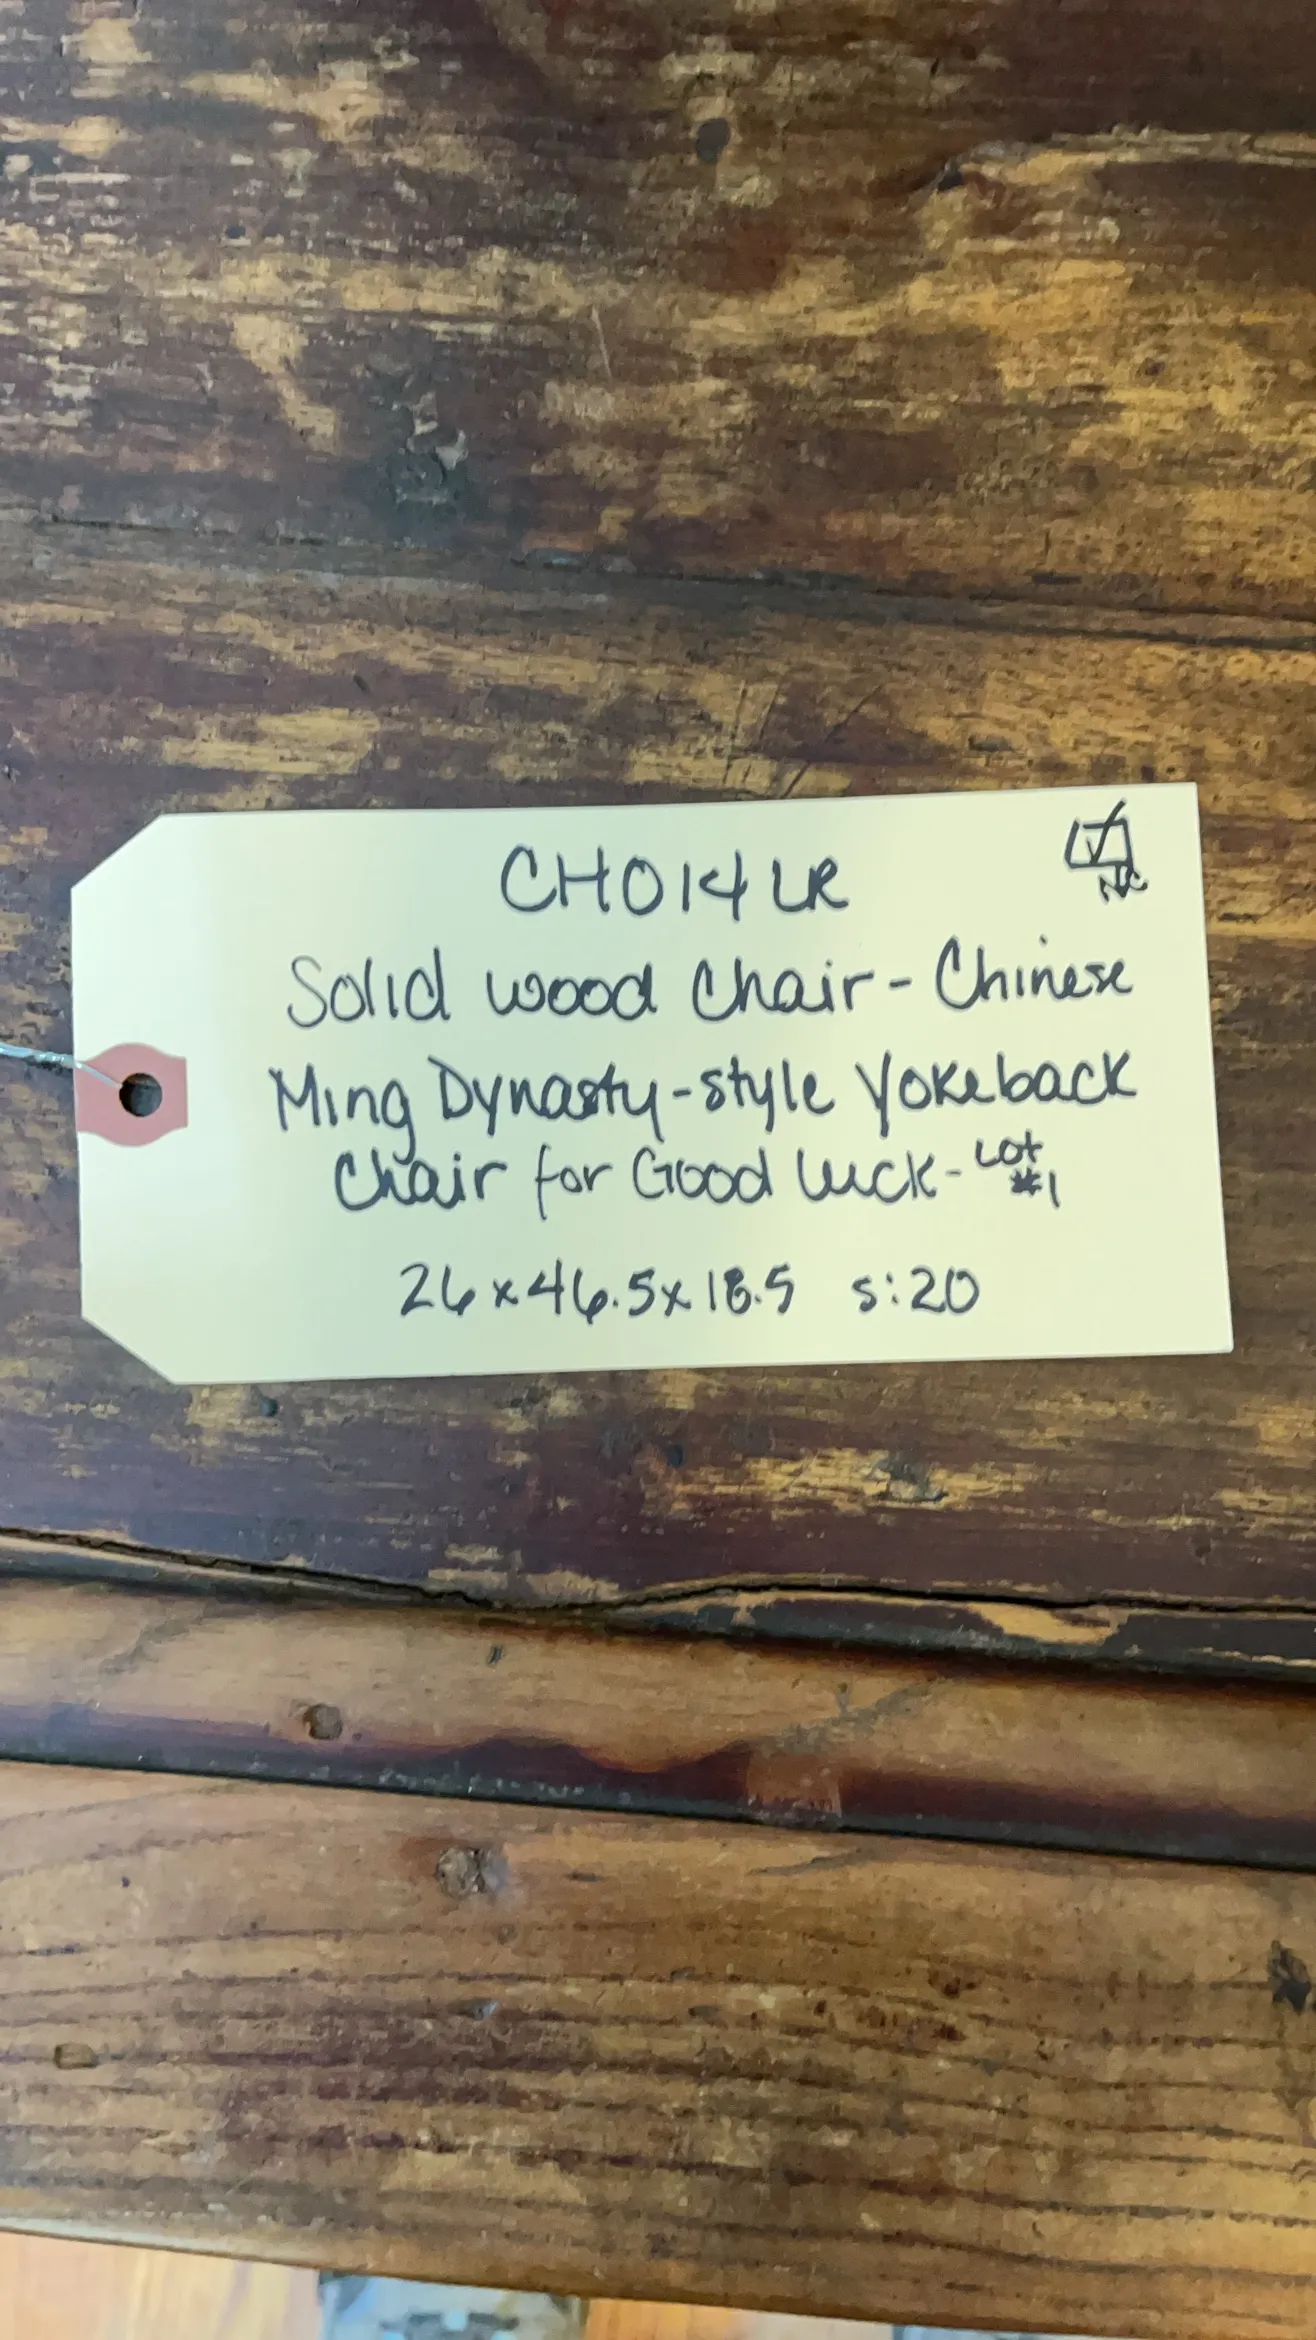 CH014LR
Solid wood Chair - Chinese
Ming Dynasty-style Yokeback
Chair for Good Luck - Lot #1
26x46.5x18.5 s:20